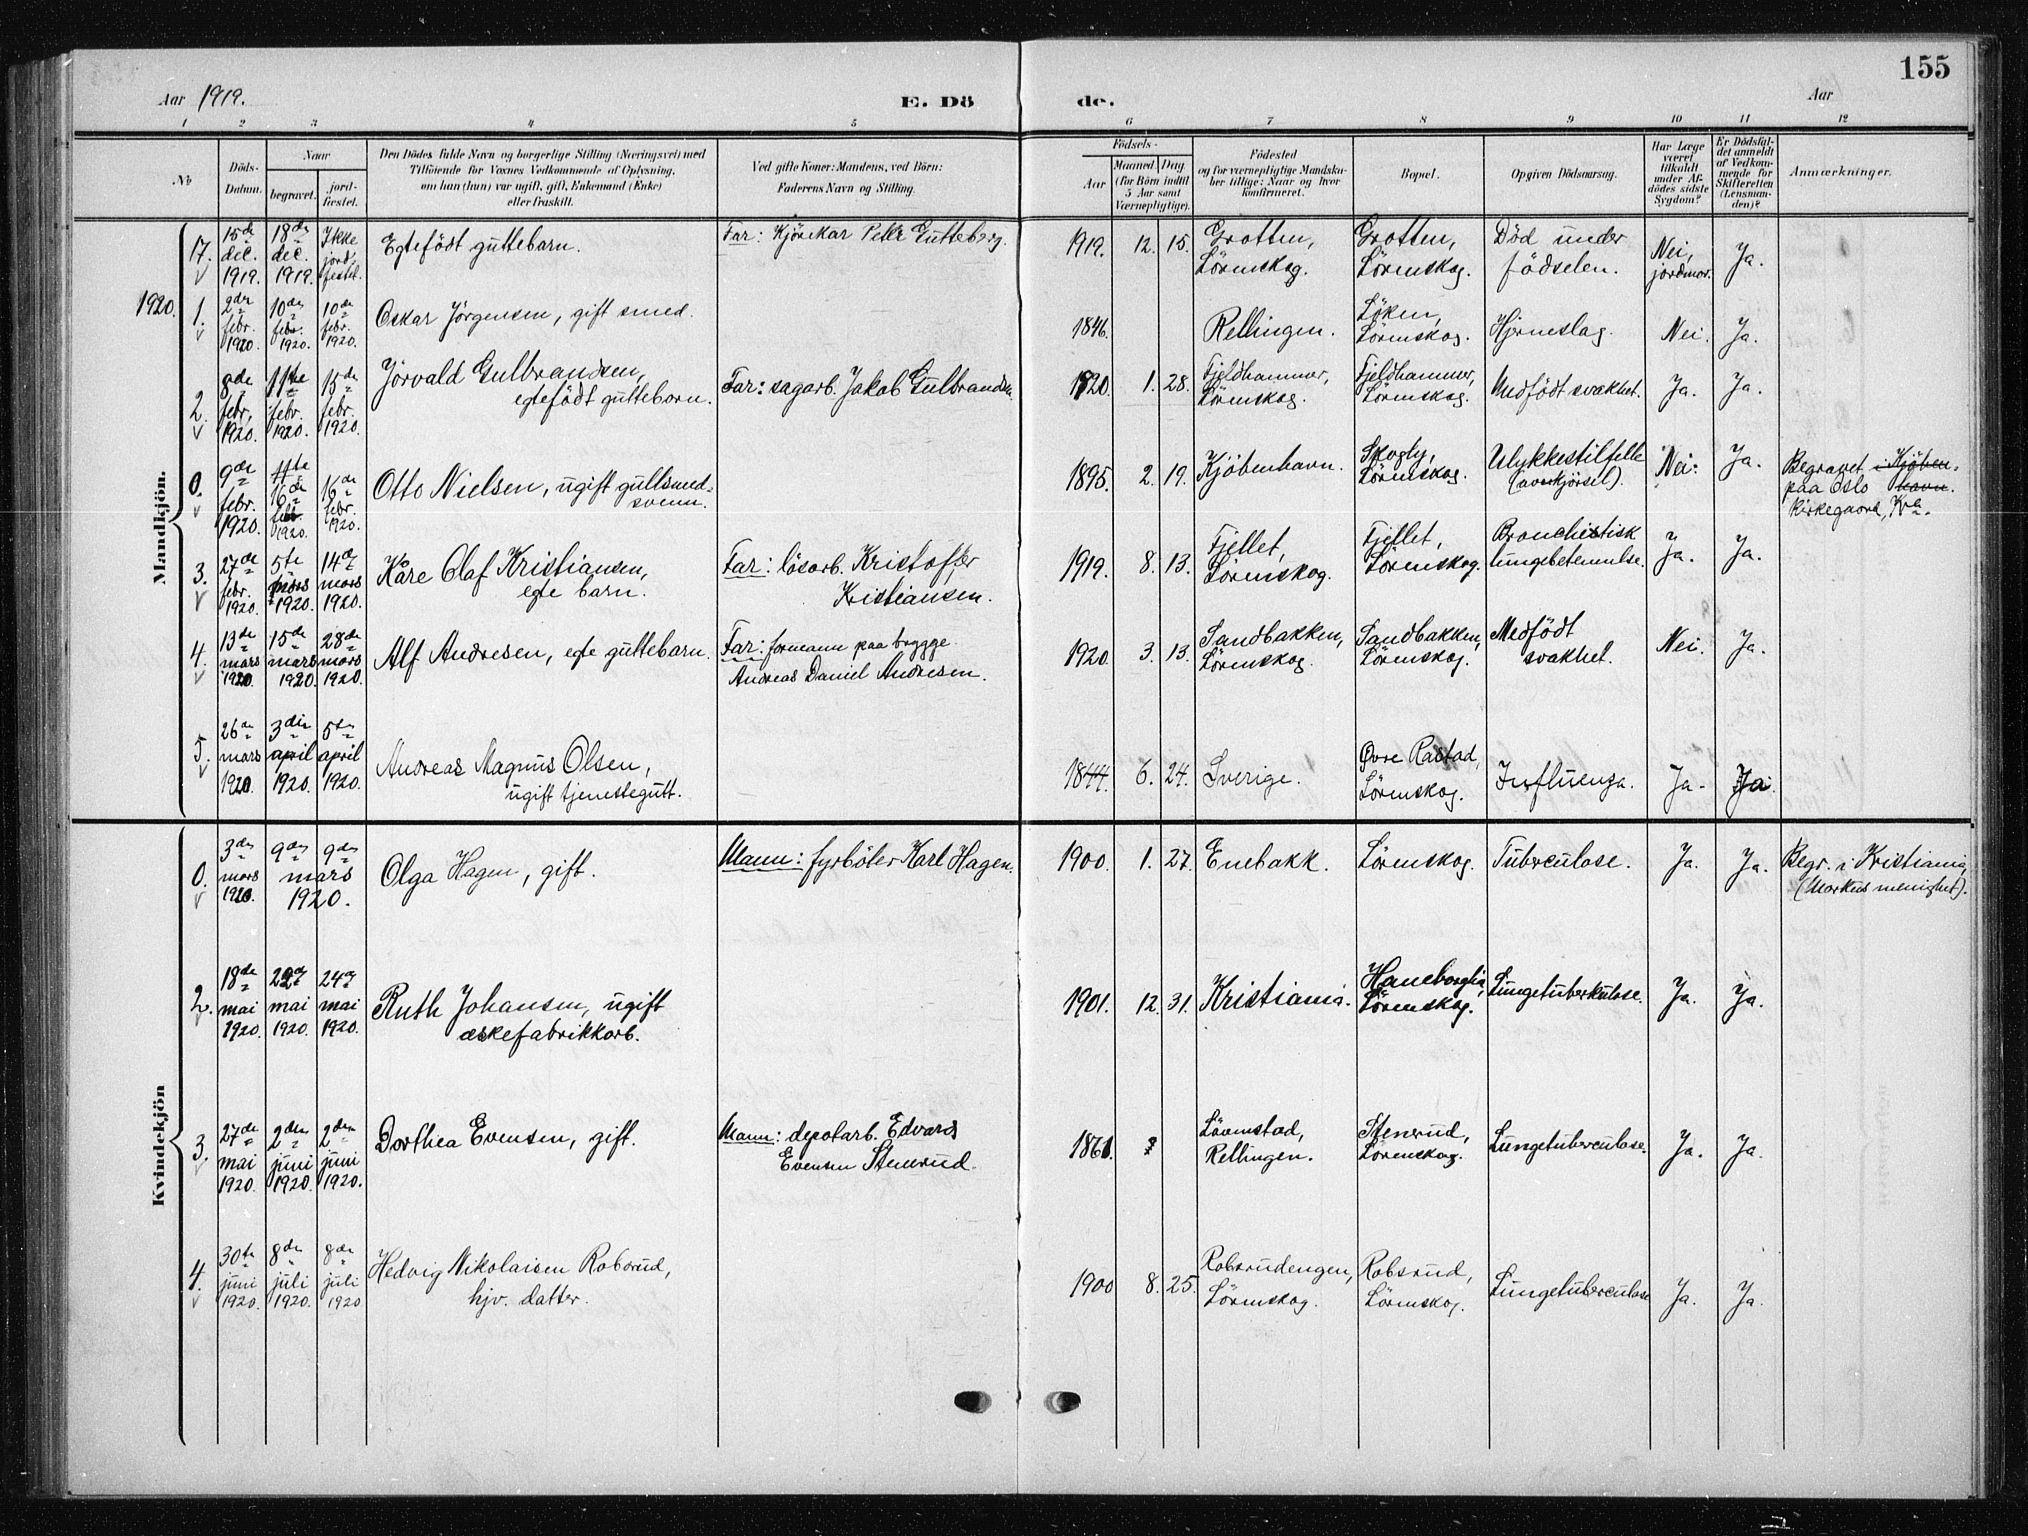 155
Aar 1919.
E. Dö
de.
Aar
1 2 3 4 5 6 7 8 9 10 11 12
No
Döds-
Datum.
Naar
begravet.
jord-
fæstet.
Den Dödes fulde Navn og borgerlige Stilling (Næringsvei) med
Tilföiende for Voxnes Vedkommende af Oplysning,
om han (hun) var ugift, gift, Enkemand (Enke)
eller fraskilt.
Ved gifte Koner: Mandens, ved Börn:
Faderens Navn og Stilling.
Födsels-
Aar
Maaned
Dag
(for Börn indtil
5 Aar samt
Værnepligtige).
Födested
og for værnepligtige Mandska-
ber tillige: Naar og hvor
konfirmeret.
Bopæl.
Opgiven Dödsaarsag.
Har Læge
været
tilkaldt
under Af-
dödes sidste
Sygdom?
Er Dödsfal-
det anmeldt
af Vedkom-
mende for
Skifteretten
(Lensman-
den)?
Anmærkninger.
Mandkjön.
17.
15de dec. 1919.
18de dec. 1919.
Ikke jordfæstet.
Egtefödt guttebarn.
Far: Kjörekar Petter Gutteberg.
1919. 12. 15.
Grotten,
Lörenskog.
Grotten,
Lörenskog.
Död under
födselen.
Nei,
jordmor.
Ja.
1920.
1.
2den febr. 1920.
10de febr. 1920.
10de febr. 1920.
Oskar Jörgensen, gift smed.
1846.
Rellingen.
Löken,
Lörenskog.
Hjerneslag.
Nei.
Ja.
2.
8de febr. 1920.
11te febr. 1920.
15de febr. 1920.
Jörvald Gulbrandsen,
egtefödt guttebarn.
Far: sagarb. Jakob Gulbrandsen
1920. 1. 28.
Fjeldhammer,
Lörenskog.
Fjeldhammer,
Lörenskog.
Medfödt svakhet.
Ja.
Ja.
0.
9de febr. 1920.
16de febr. 1920.
16de febr. 1920.
Otto Nielsen, ugift gullsmed-
svenn.
1895. 2. 19.
Kjöbenhavn.
Skogly,
Lörenskog.
Ulykkestilfelle
(overkjørsel).
Nei.
Ja.
Begravet i Kjöben-
paa Oslo havn.
kirkegaard, Kra.
3.
27de febr. 1920.
5te mars 1920.
14de mars 1920.
Kåre Olaf Kristiansen,
egte barn.
Far: lösarb. Kristoffer
Kristiansen.
1919. 8. 13.
Fjellet,
Lörenskog.
Fjellet,
Lörenskog.
Bronchistisk
lungebetennelse.
Ja.
Ja.
4.
13de mars 1920.
15de mars 1920.
28de mars 1920.
Alf Andresen, egte guttebarn.
Far: formann paa brygge
Andreas Daniel Andresen.
1920. 3. 13.
Sandbakken,
Lörenskog.
Sandbakken,
Lörenskog.
Medfödt
svakhet.
Nei.
Ja.
5.
26de mars 1920.
3die april 1920.
5te april 1920.
Andreas Magnus Olsen,
ugift tjenestegutt.
1844. 6. 24.
Sverige.
Øvre Rastad,
Lörenskog.
Influenza.
Ja.
Ja.
Kvindekjön
0.
3de mars 1920.
9de
9de
mars
1920.
Olga Hagen, gift.
Mann: fyrböter Karl Hagen.
1900. 1. 27.
Enebakk.
Lörenskog.
Tuberculose.
Ja.
Ja.
Begr. i Kristiania,
(Markus menighet).
2.
18de mai 1920.
mai 1920.
24de mai 1920.
Ruth Johansen, ugift
æskefabrikkarb.
1901. 12. 31.
Kristiania.
Haneborglia,
Lörenskog.
Lungetuberkulose.
Ja.
Ja.
3.
27de mai 1920.
2den juni 1920.
2den juni 1920.
Dorthea Evensen, gift.
Mann: depotarb. Edvard
Evensen Stenerud.
1861. ?
Lörenstad,
Rellingen.
Stenerud,
Lörenskog.
Lungetuberculose.
Ja.
Ja.
4.
30te juni 1920.
8de juli 1920.
8de juli 1920
Hedvig Nikolaisen Robsrud,
hjv. datter.
1900 8. 25.
Robsrudengen,
Lörenskog.
Robsrud,
Lörenskog.
Lungetuberculose
Ja.
Ja.